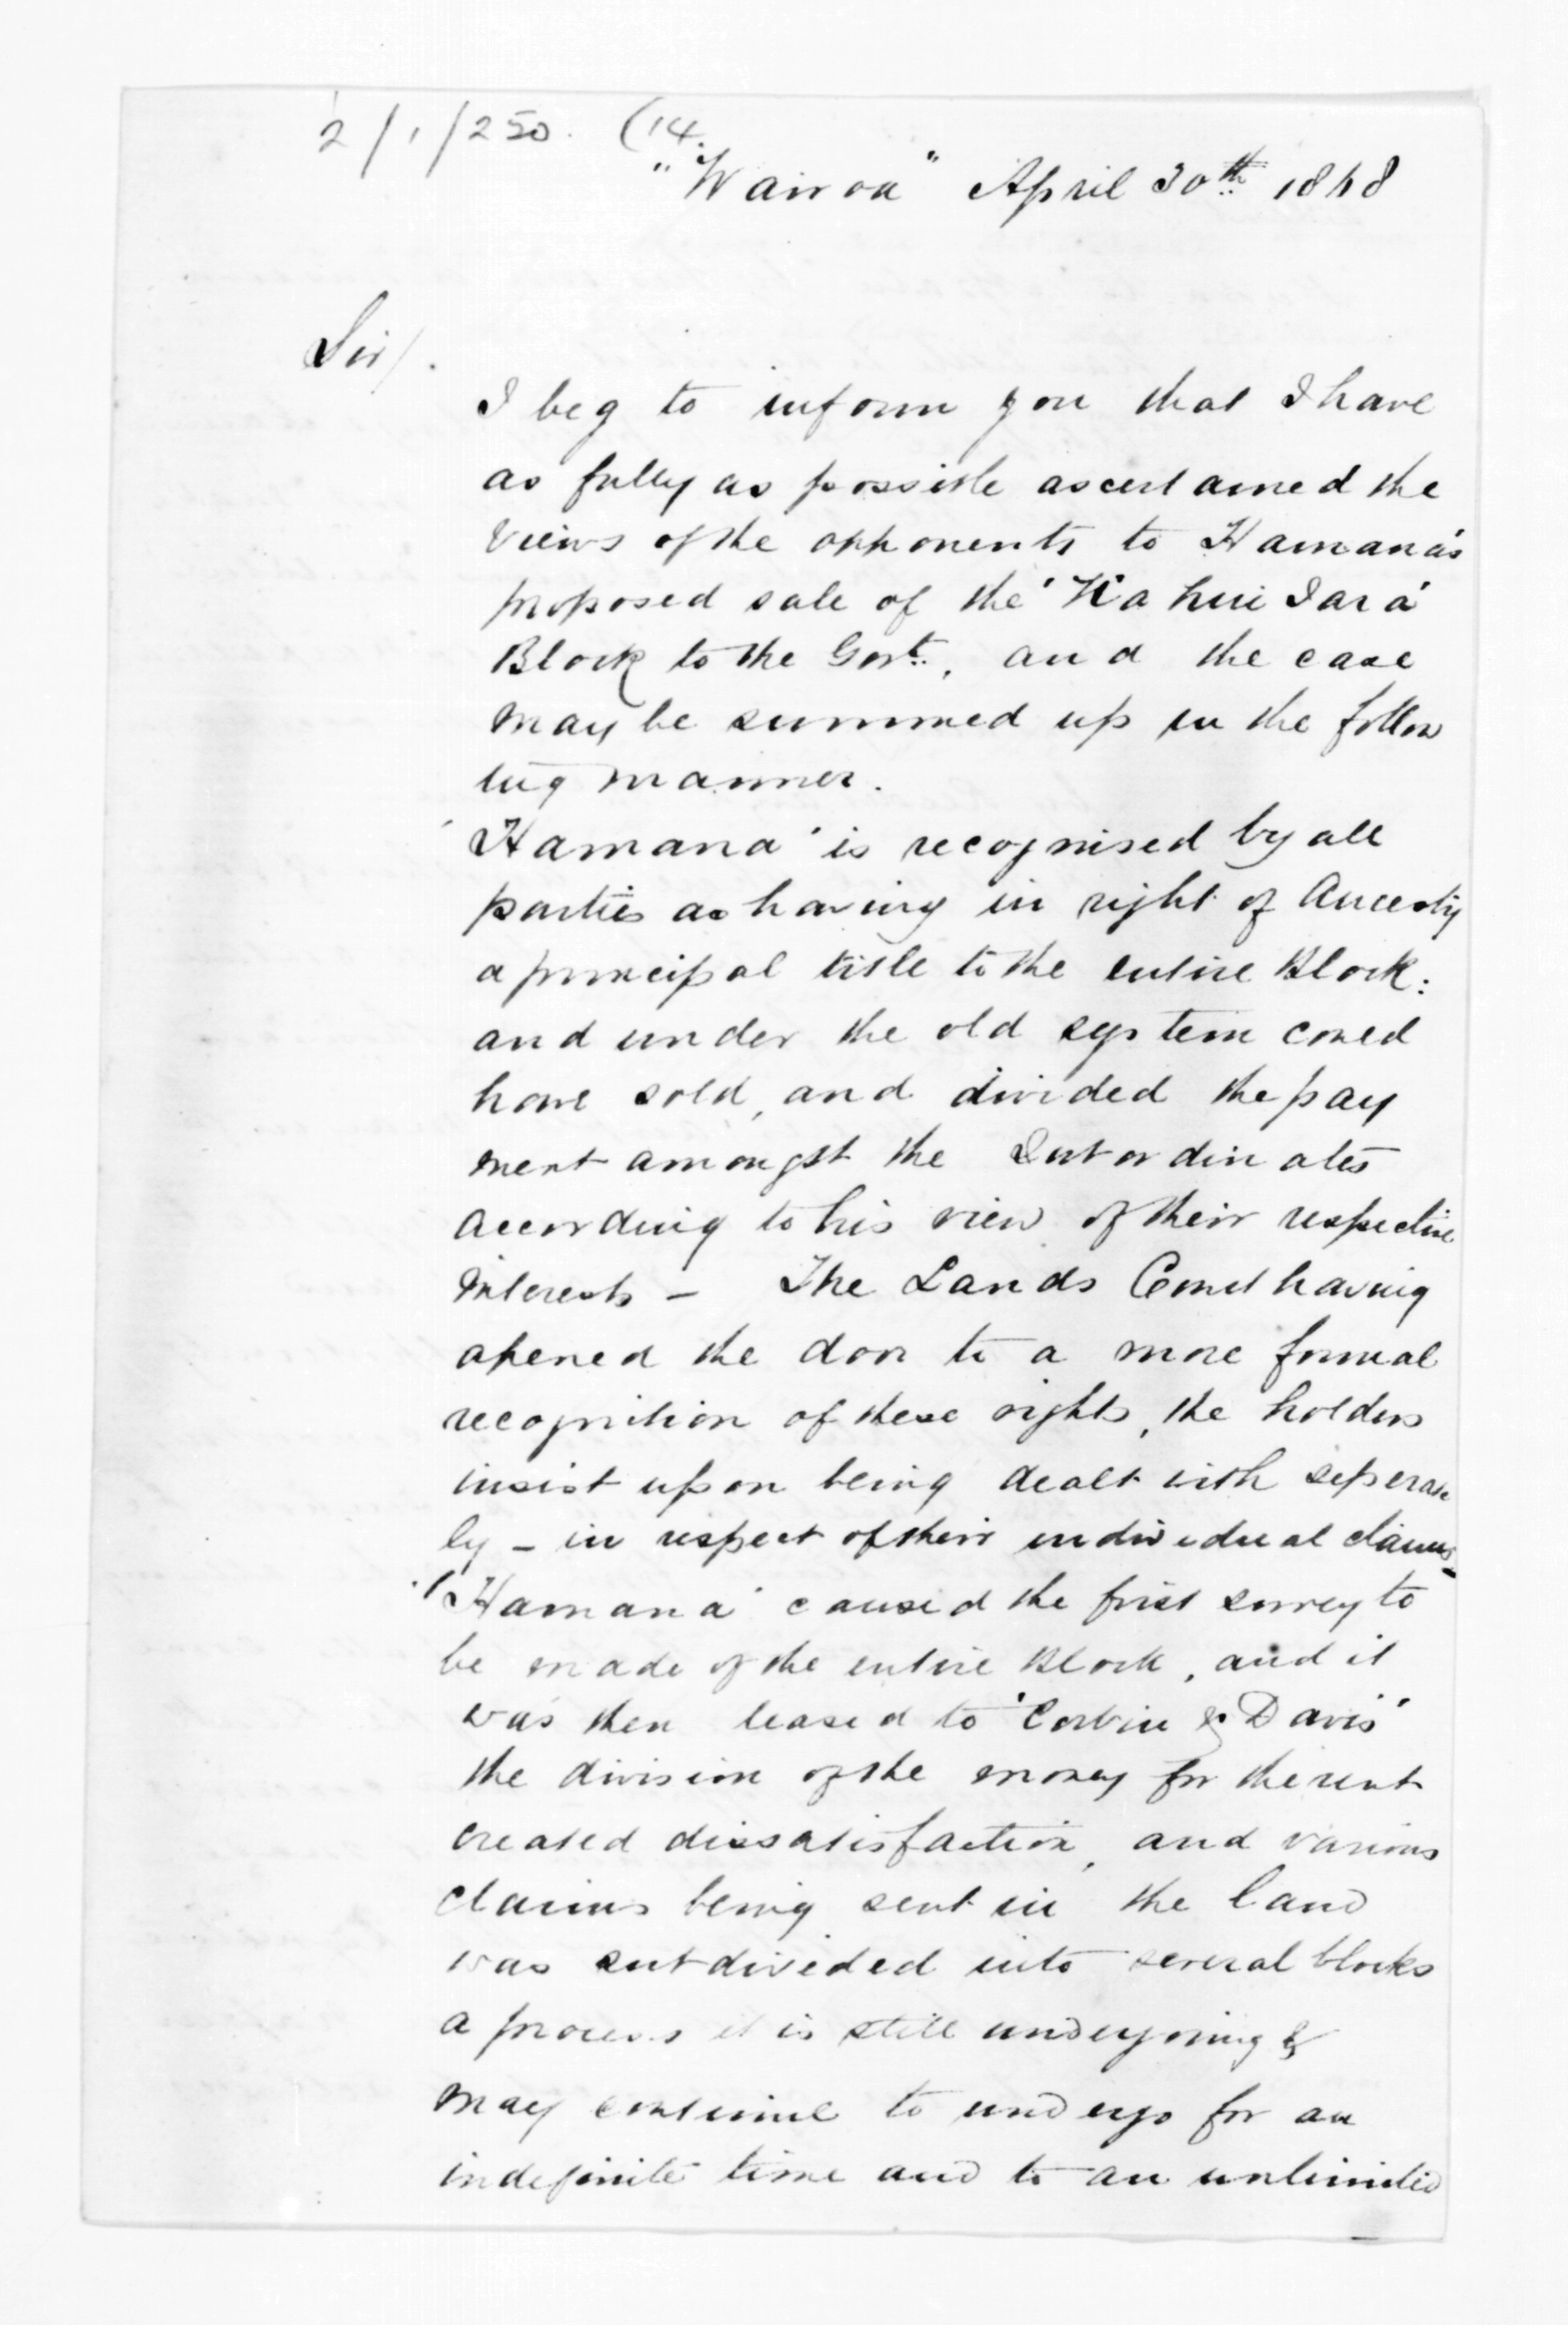 2/1/250. (14.
"Wairoa" April 30th 1868
Sir/.
I beg to inform you that I have
as fully as possible ascertained the
views of the opponents to Hamana's
proposed sale of the 'Kahui Tara'
Block to the Govt., and the case
may be summed up in the follow
ing manner.
'Hamana' is recognised by all
parties as having in right of Ancestry
a principal title to the entire Block:
and under the old system could
have sold, and divided the pay
ment amongst the Subordinates
according to his view of their respective
interests - The Lands Court having
opened the door to a more formal
recognition of these rights, the holders
insist upon being dealt with seperate
ly - in respect of their individual claims -
'Hamana' caused the first survey to
be made of the entire Block, and it
was then leased to 'Corbin & Davis'
the division of the money for the rent
created dissatisfaction, and various
claims being sent in the land
was subdivided into several blocks
a process it is still undergoing &
may continue to undergo for an
indefinite time and to an unlimited